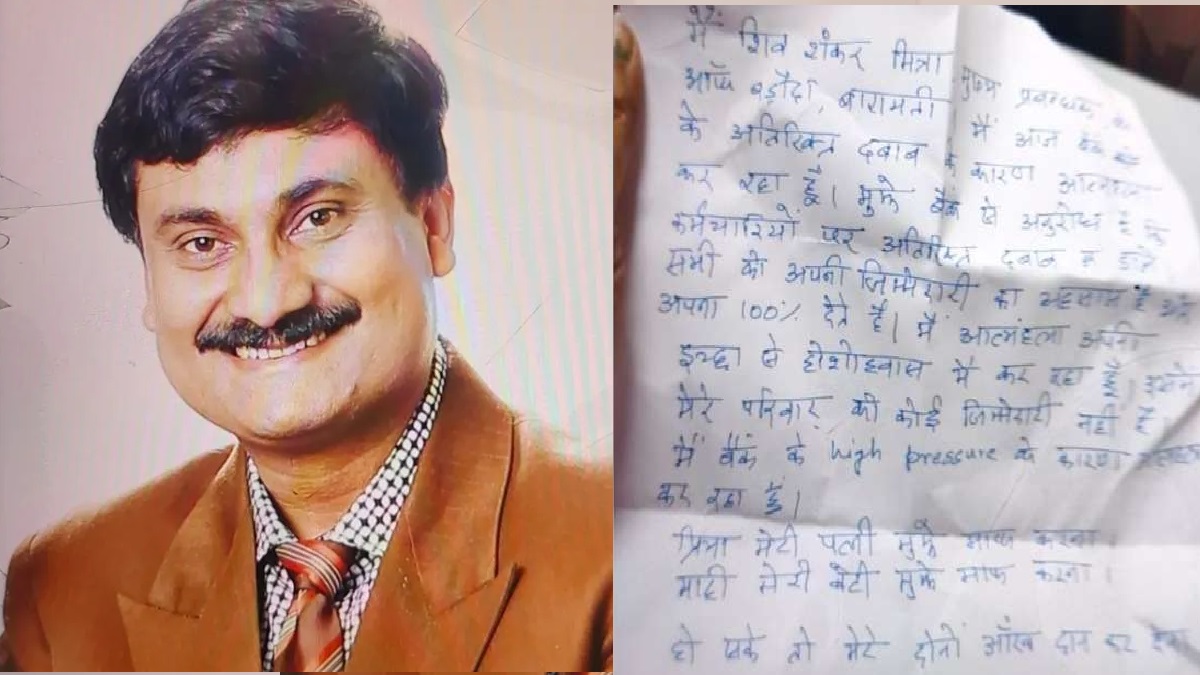 मैं शिव शंकर मित्रा मुख्य प्रबन्धक,
ऑफ बड़ौदा, बारामती मैं आज बैंक
के अतिरिक्त दबाब के कारण
कर रहा हूँ। मुझे बैंक से अनुरोध है कि
कर्मचारियों पर अतिरिक्त दबाब न डाले
सभी को अपनी जिम्मेदारी का अहसास है
अपना 100% देते है। मैं आत्महत्या अपनी
इच्छा से होशोहवास में कर रहा हूँ। इसमें
मेरे परिवार की कोई जिम्मेदारी नहीं है
मैं बैंक के high pressure के कारण
कर रहा हूँ।
प्रिया मेरी पत्नी मुझे माफ करना।
माही मेरी बेटी मुझे माफ करना।
हो सके तो मेरे दोनों आँख दान कर देना